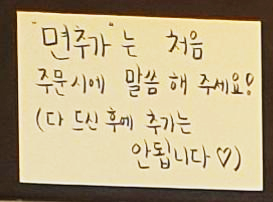 "면추가"는 처음
주문시에 말씀 해 주세요!
(다 드신 후에 추가는
안됩니다♡)